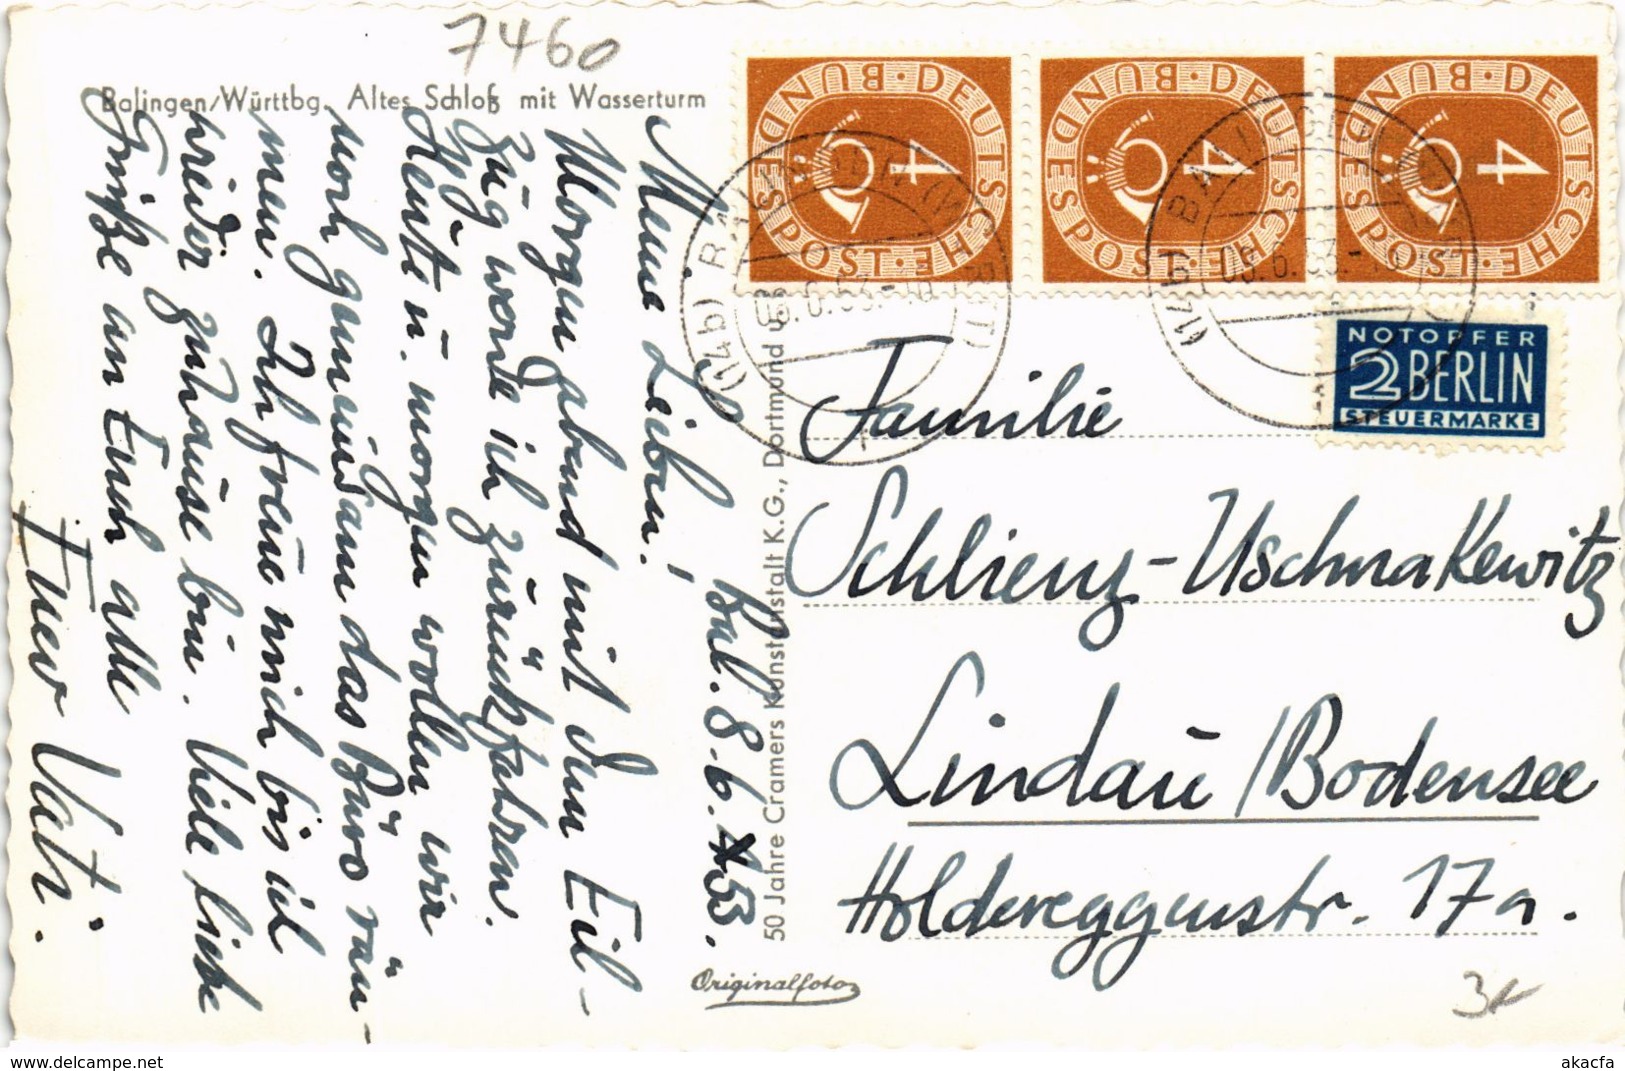 7460
Balingen/Württbg. Altes Schloß mit Wasserturm
Bal. 8.6.53.
Meine Lieben!
Morgen abend mit dem Eil-
zug werde ich zurückfahren.
Heute u. morgen wollen wir
noch gemeinsam das Büro räu-
men. Ich freue mich bis ich
wieder zuhause bin. Viele liebe
Grüße an Euch alle
Euer Vati.
50 Jahre Cramers Kunstanstalt K.G., Dortmund
Originalfoto
DEUTSCHE BUNDESPOST 4
DEUTSCHE BUNDESPOST 4
DEUTSCHE BUNDESPOST 4
(14b) BALINGEN (WÜRTT)
08.6.53.-18
(14b) BALINGEN (WÜRTT)
08.6.53.-18
NOTOPFER
2 BERLIN
STEUERMARKE
Familie
Schlienz-Uschmakewitz
Lindau/Bodensee
Holdereggenstr. 17a.
delcampe.net
akacfa